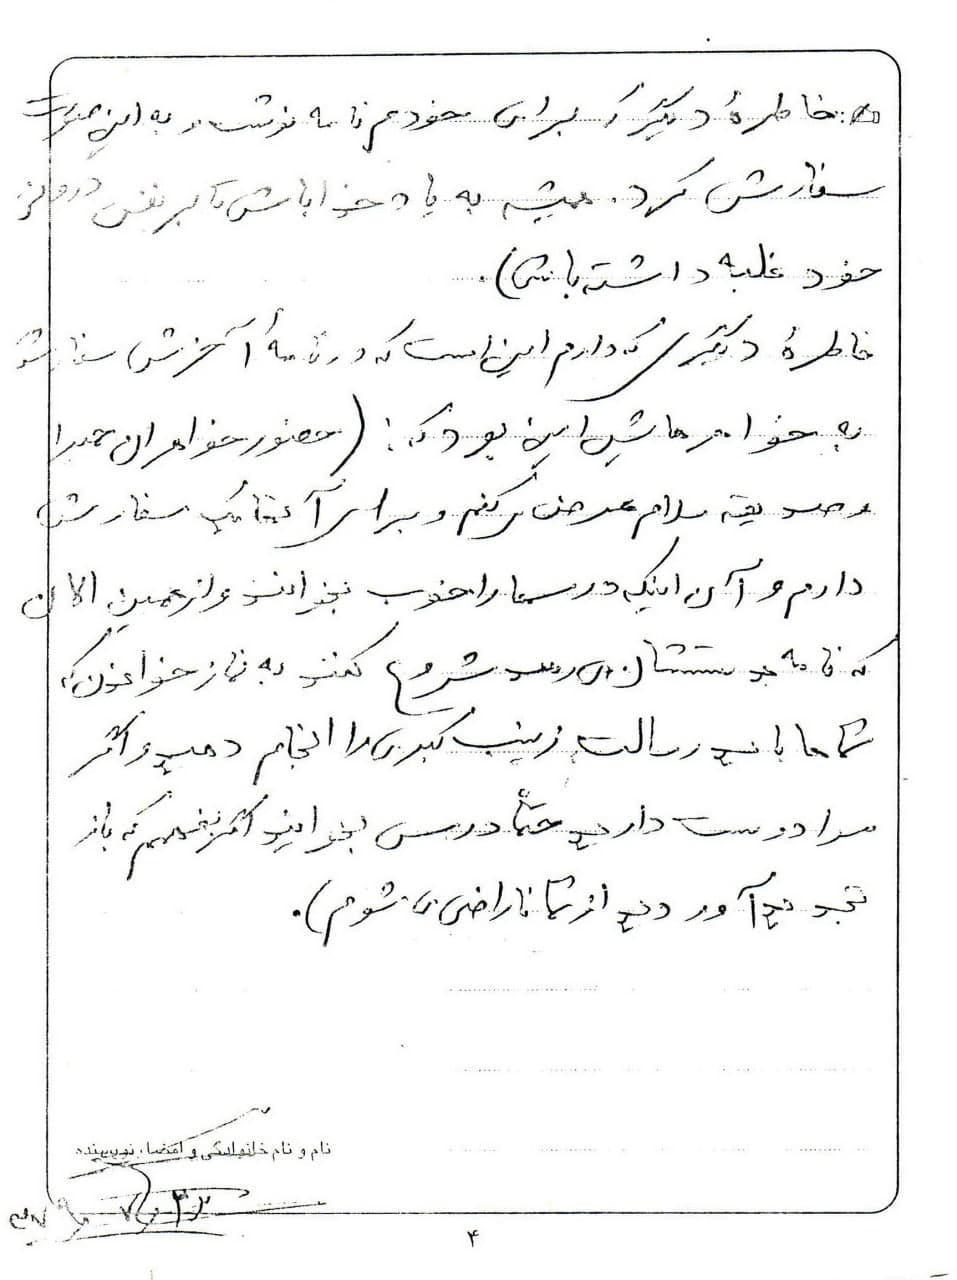 خاطرهٔ دیگر که برای خودم نامه نوشت و به این صورت
سفارش کرد. همیشه به یاد خدا باش تا بر نفس
خود غلبه داشته باشی).
خاطرهٔ دیگری که دارم این است که در نامهٔ آخرش سفارشش
به خواهرهایش این بود که: (حضور خواهران حمیرا
و صدیقه سلام عرض می‌کنم و برای آنها یک سفارش
دارم و آن اینکه درسها را خوب بخوانند و از همین الان
که نامه بدستشان می‌رسد شروع کنند به نماز خواندن که
شماها باید رسالت زینب کبری را انجام دهید و اگر
مرا دوست دارید حتماً درس بخوانید اگر بفهمم که باز
تجدید آوردید از شما ناراضی می‌شوم).
نام و نام خانوادگی و امضاء نویسنده
۴